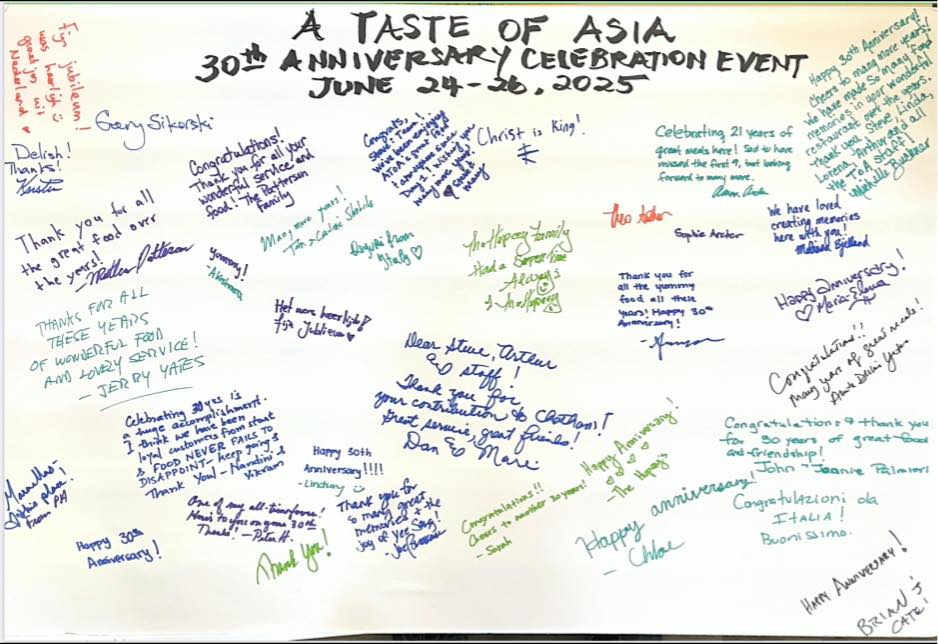 A TASTE OF ASIA
30th ANNIVERSARY CELEBRATION EVENT
JUNE 24-26, 2025
Fijn jubileum!
was heerlijk
groetjes uit
Nederland
Gary Sikorski
Delish!
Thanks!
Kerstin
Congratulations!
Thank you for all your
wonderful service and
food! The Patterson
Family
Congrats,
Team!
We've been enjoying
ATOA's great food
since
Day 1! Wishing you
many more
Christ is King!
Celebrating 21 years of
great meals here! Sad to have
missed the first 9, but looking
forward to many more.
Happy 30th Anniversary!
Cheers to many more years!
We have made so many fond
memories in your wonderful
restaurant over the years.
Thank you Steve, Linda,
Lorena, Arthur and all
the ToA Staff!
Michelle
Thank you for all
the great food over
the years!
Patterson
Many more years!
Tim &
from
Italy
yummy!
The Hopey Family
Had a Super Time
Always
Theo Archer
Sophie Archer
We have loved
creating memories
here with you!
Melissa
Happy Anniversary!
Maria Elena
THANKS FOR ALL
THESE YEARS
OF WONDERFUL FOOD
AND LOVELY SERVICE!
- JERRY YATES
Het was heerlijk!
fijn Jubileum
Thank you for
all the yummy
food all these
years! Happy 30th
Anniversary!
Dear Steve, Arthur
& staff!
Thank you for
your contribution to Chatham!
Great service, great friends!
Dan & Marie
Congratulations!!
Many years of great meals!
Celebrating 30 yrs is
a huge accomplishment.
I think we have been
loyal customers from start
& FOOD NEVER FAILS TO
DISAPPOINT - keep going &
Thank You! - Nandini &
Vikram
Happy 30th
Anniversary!!!!
- Lindsay
Happy Anniversary!
- The Hopeys
Congratulations & thank you
for 30 years of great food
and friendship!
John & Joanne Palmieri
from PA
Happy 30th
Anniversary!
One of my all-time faves!
Here's to you on your 30th
Thanks! - Peter H.
Thank You!
Thank you for
so many great
memories & the
joy of yee Sang!
Congratulations!!
Cheers to another 30 years!
- Sarah
Happy anniversary!
- Chloe
Congratulazioni da
ITALIA!
Buonissimo.
HAPPY ANNIVERSARY!
BRIAN &
CATE!